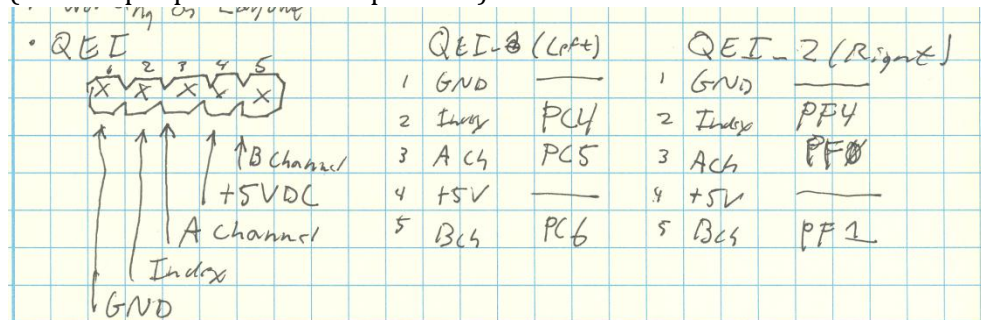 • QEI
1 2 3 4 5
X X X X X
B Channel
+5VDC
A Channel
Index
GND
QEI-1 (Left)
1 GND ——
2 Index PC4
3 A Ch PC5
4 +5V ——
5 Bch PC6
QEI-2 (Right)
1 GND ——
2 Index PF4
3 Ach PF0
4 +5V ——
5 Bch PF1